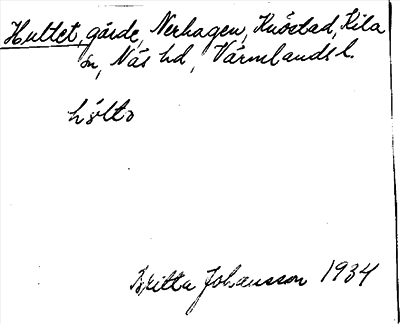 Hultet, gärde, Nerhagen, Knöstad, Kila
sn, Näs hd, Värmlands l.
hólto
Britta Johansson 1934